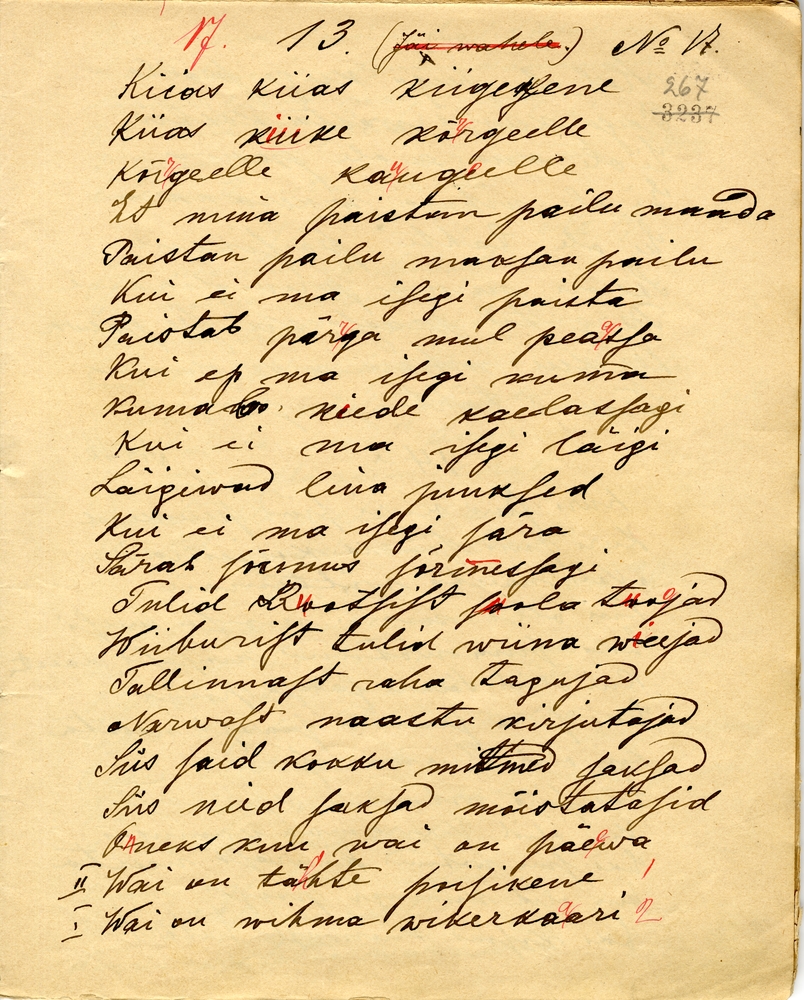 17. 13. (Jäi wahele.) № 17.
267
3237
Kiias kiias kiigekene
Kiias kiike kõrgeelle
Kõrgeelle kaugeelle
Et mina paistan pailu maada
Paistan pailu maksan pailu
Kui ei ma isegi paista
Paistab pärga mul peassa
Kui ep ma isegi kuma
Kumab kiede kaelassagi
Kui ei ma isegi läigi
Läigiwad liina juuksed
Kui ei ma isegi sära
Särab sõrmus sõrmessagi
Tulid Rootsist soola toojad
Wiiburist tulid wiina wiejad
Tallinnast raha tagujad
Narwast naastu kirjutajad
Siis said kokku mitmed saksad
Siis niid saksad mõistatasid
Oneks kuu wai on päewa
II Wai on tähte poisikene 1
I. Wai on wihma wikerkaari 2